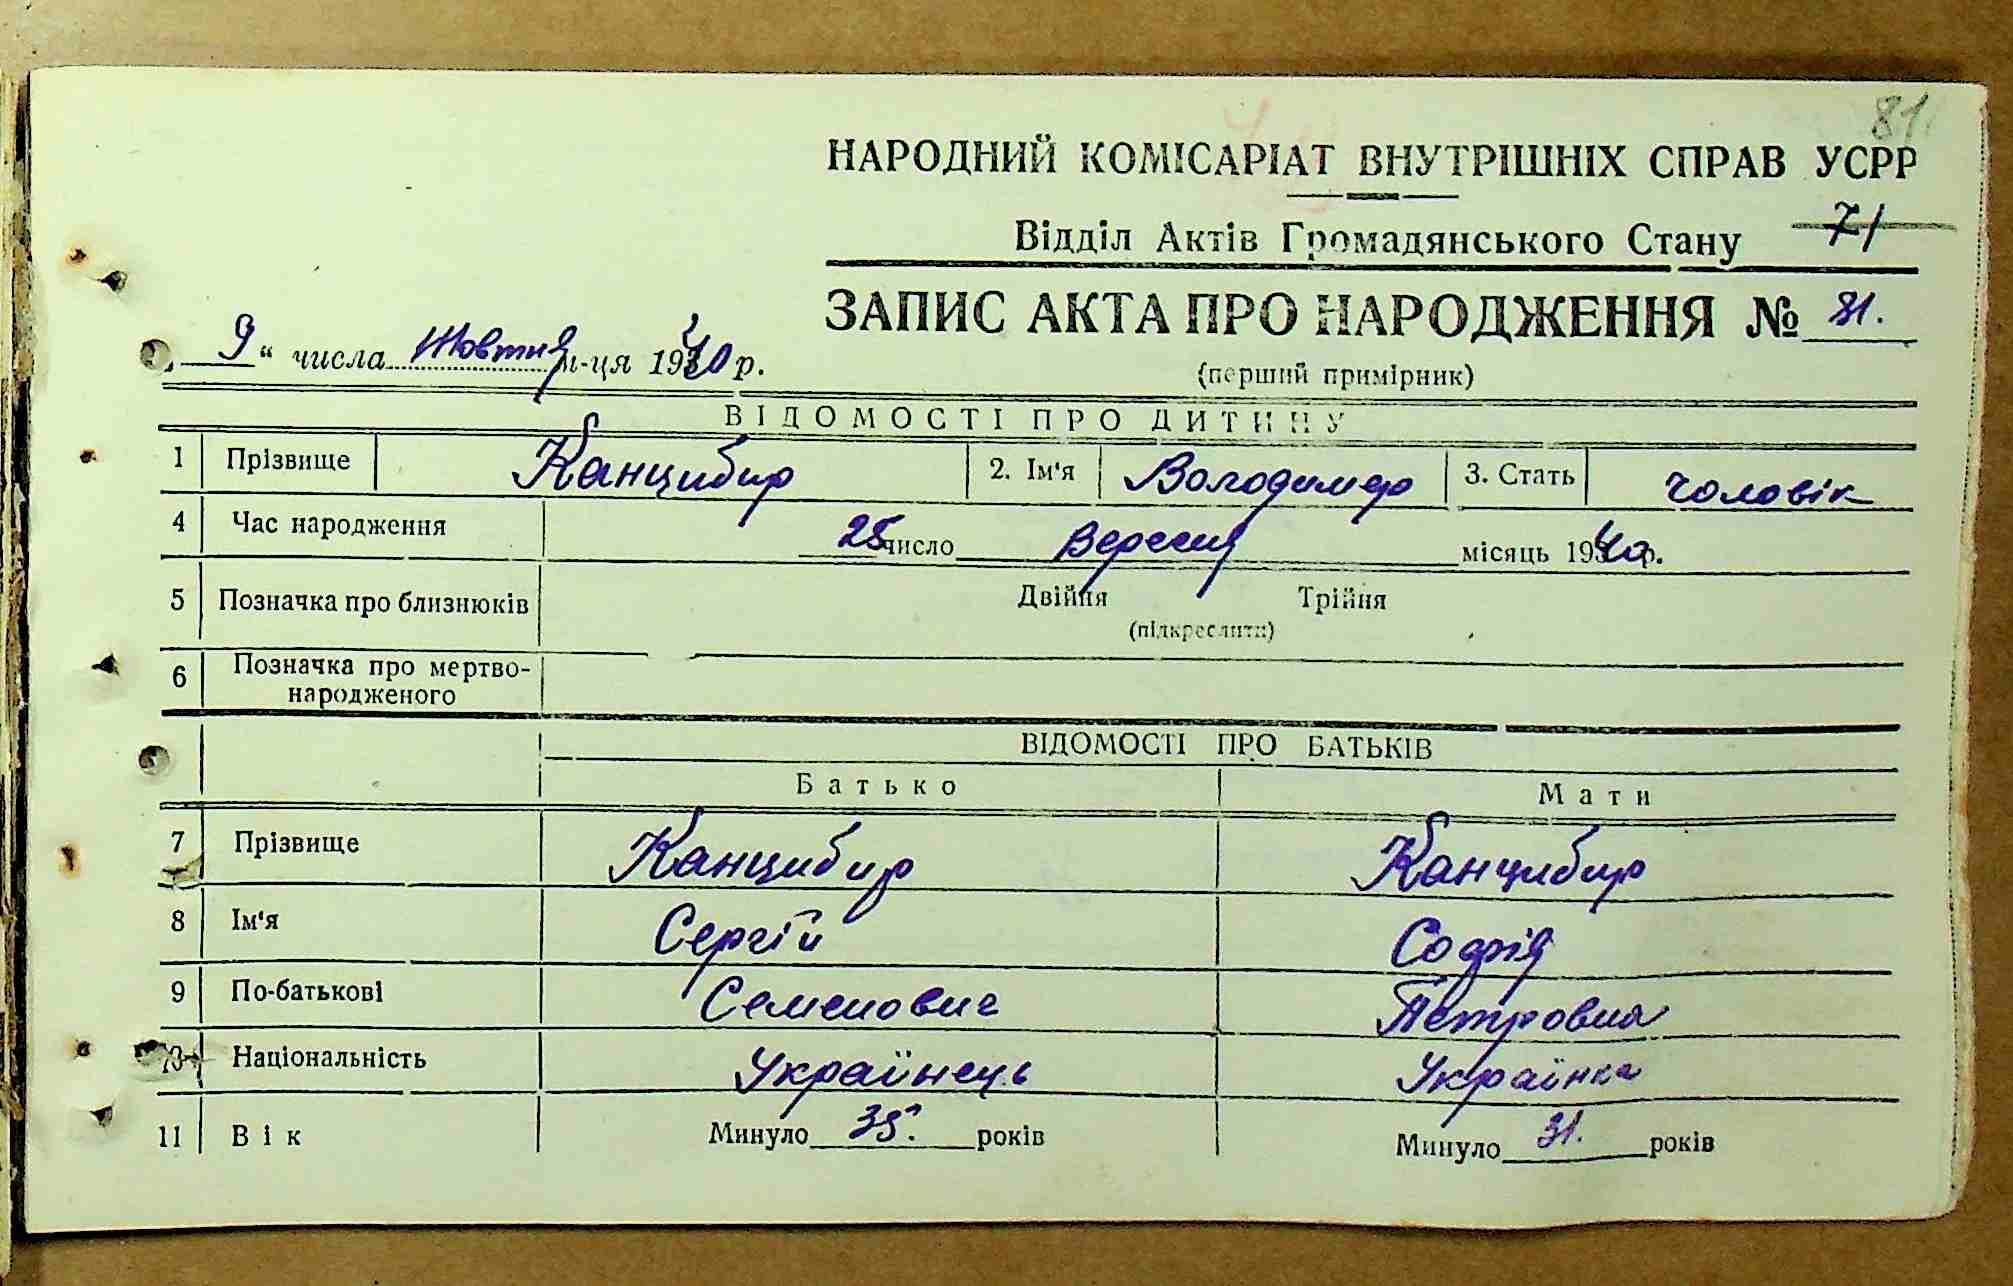 81
НАРОДНИЙ КОМІСАРІАТ ВНУТРІШНІХ СПРАВ УСРР
Відділ Актів Громадянського Стану 71
ЗАПИС АКТА ПРО НАРОДЖЕННЯ № 81.
„ 9 “ числа Жовтня м-ця 1940 р.
(перший примірник)
ВІДОМОСТІ ПРО ДИТИНУ
1 Прізвище Канцибир 2. Ім'я Володимир 3. Стать чоловік
4 Час народження 25 число Вересня місяць 1940 р.
5 Позначка про близнюків Двійня Трійня
(підкреслити)
6 Позначка про мертво-
народженого
ВІДОМОСТІ ПРО БАТЬКІВ
Батько Мати
7 Прізвище Канцибир Канцибир
8 Ім'я Сергій Софія
9 По-батькові Семенович Петровна
10 Національність Українець Українка
11 Вік Минуло 35. років Минуло 31. років